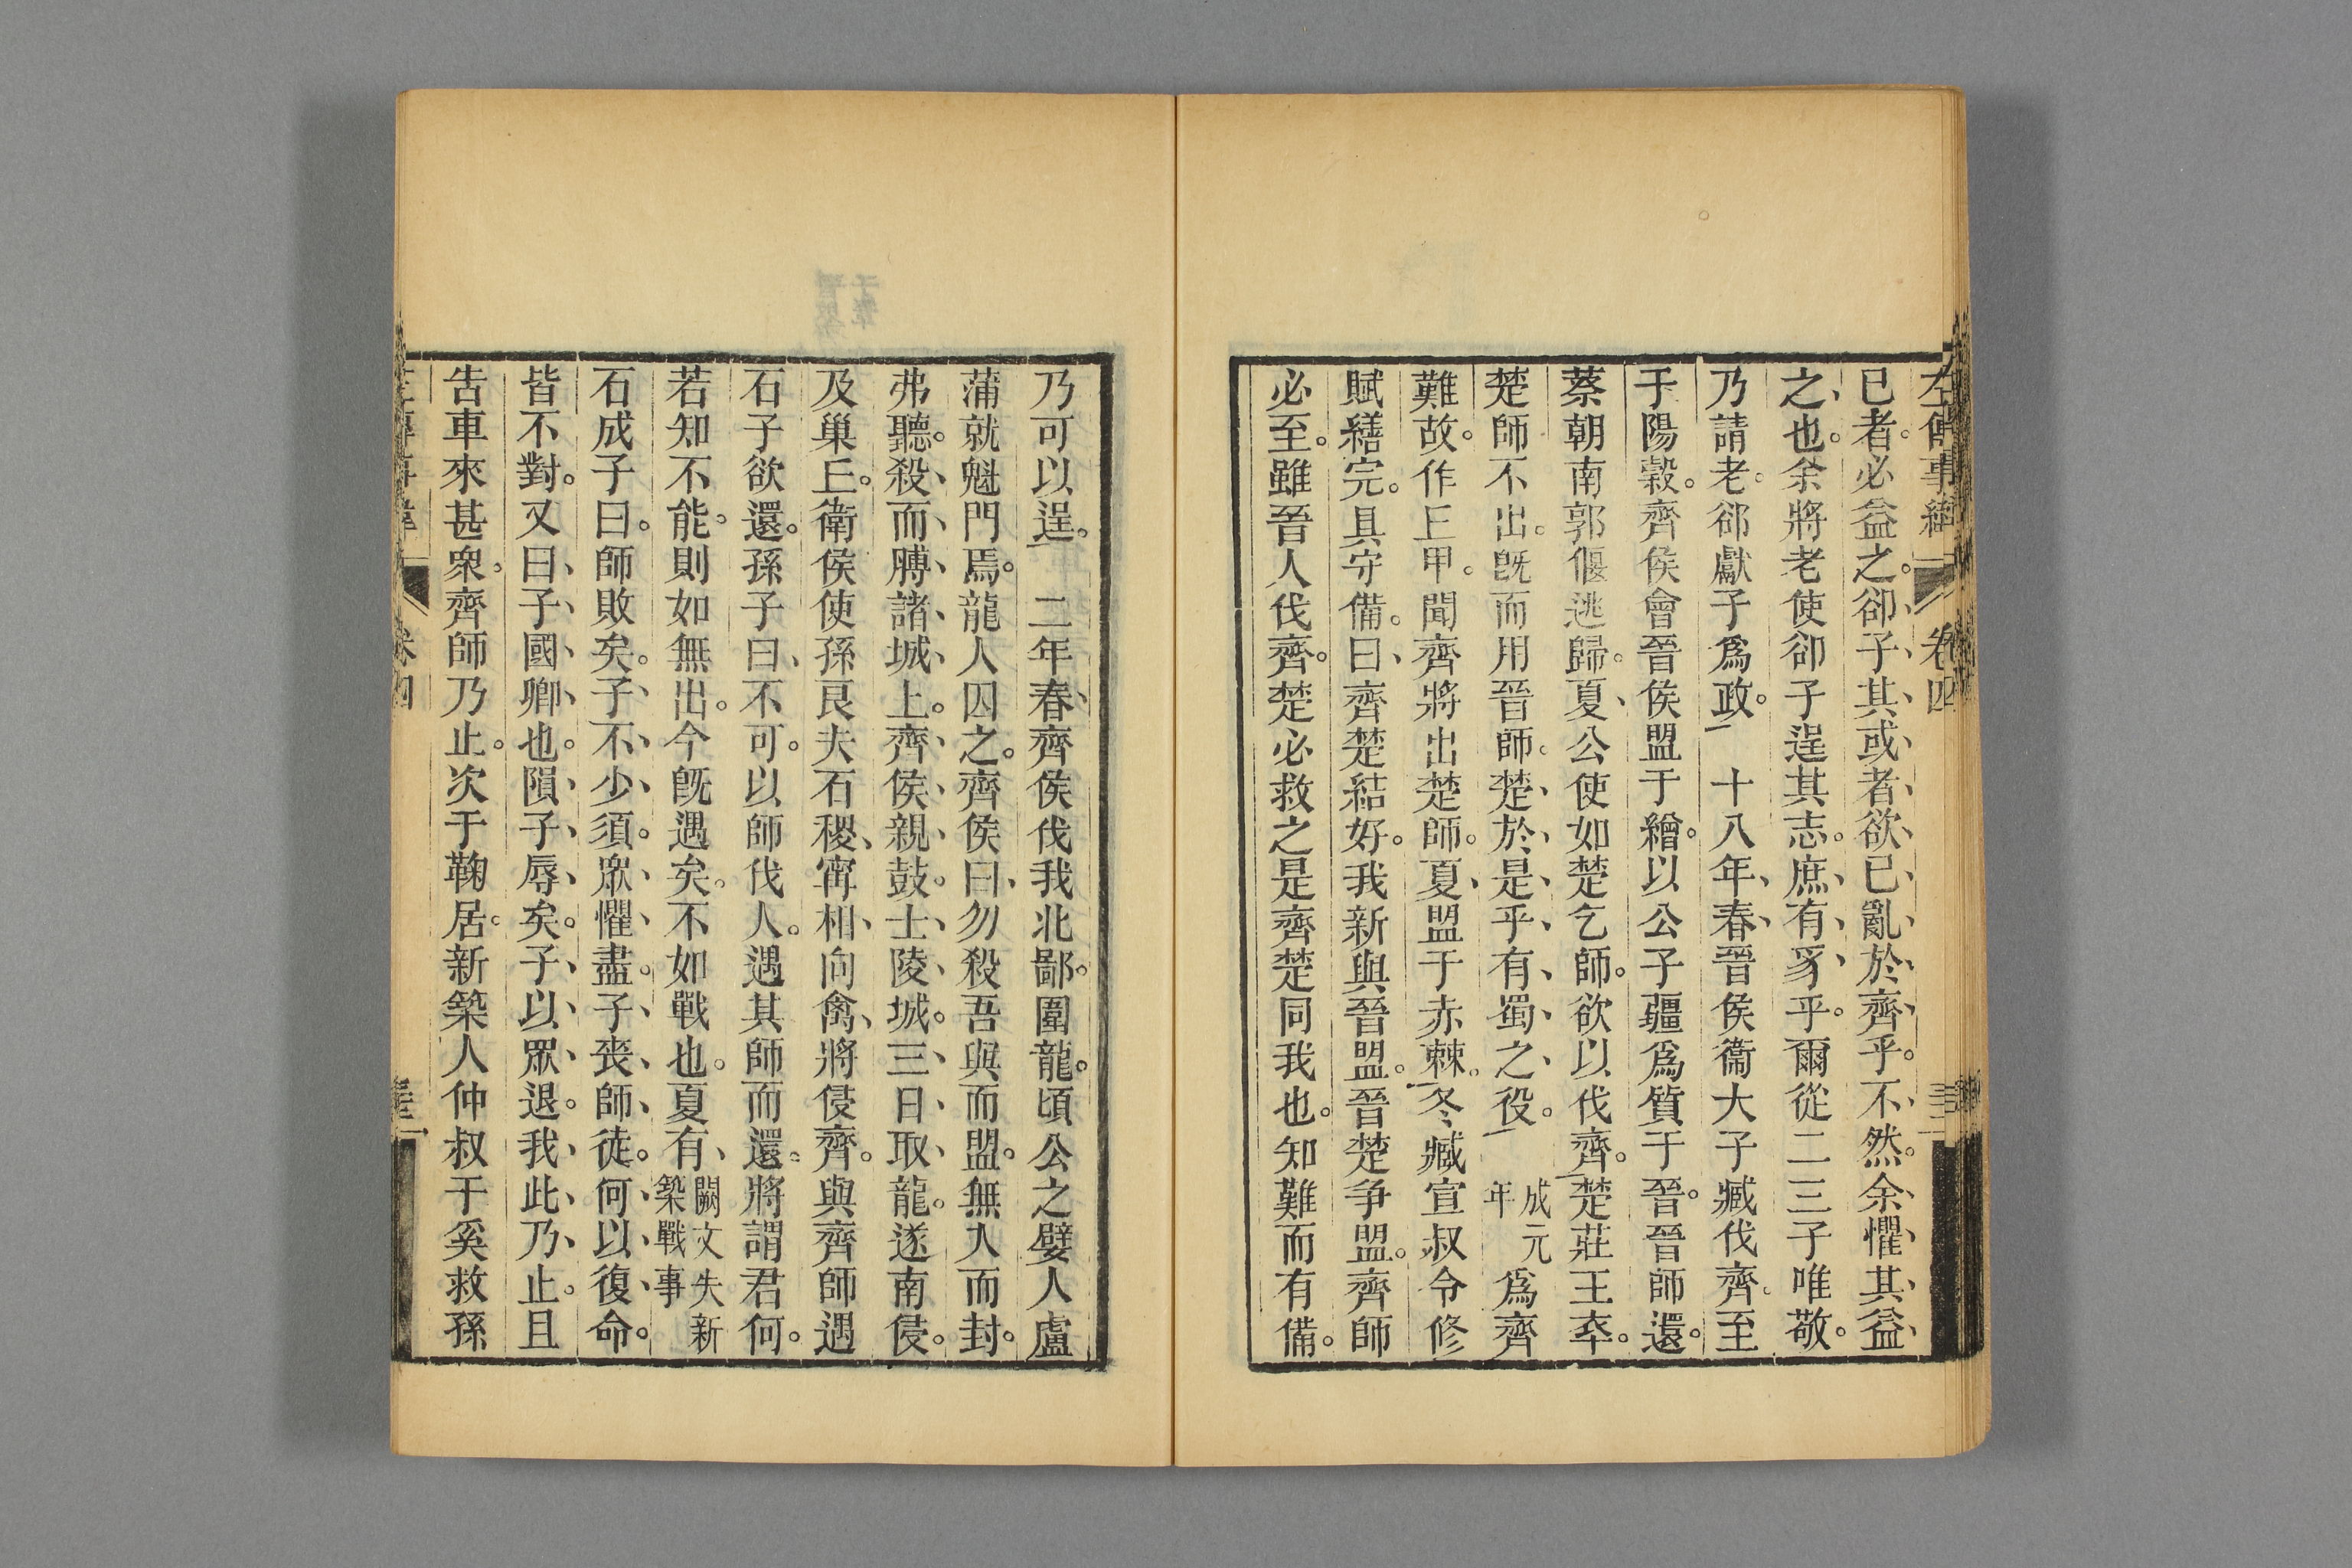 左傳事緯 卷四
已者。必益之。郤子其或者欲已亂於齊乎。不然。余懼其益
之也。余將老。使郤子逞其志。庶有豸乎。爾從二三子唯敬。
乃請老。郤獻子爲政。 十八年春晉侯衞大子臧伐齊。至
于陽穀。齊侯會晉侯盟于繒。以公子彊爲質于晉。晉師還。
蔡朝南郭偃逃歸。夏公使如楚乞師。欲以伐齊。楚莊王卒。
楚師不出。旣而用晉師。楚於是乎有蜀之役。 成元年 爲齊
難故。作丘甲。聞齊將出楚師。夏盟于赤棘。冬臧宣叔令修
賦繕完。具守備。曰齊楚結好。我新與晉盟。晉楚爭盟。齊師
必至。雖晉人伐齊。楚必救之。是齊楚同我也。知難而有備。
乃可以逞。 二年春齊侯伐我北鄙。圍龍。頃公之嬖人盧
蒲就魁門焉。龍人囚之。齊侯曰勿殺吾與而盟。無入而封。
弗聽。殺而膊諸城上。齊侯親鼓。士陵城。三日取龍。遂南侵。
及巢丘。衛侯使孫良夫石稷甯相向禽將侵齊。與齊師遇
石子欲還。孫子曰不可。以師伐人。遇其師而還。將謂君何。
若知不能。則如無出。今旣遇矣。不如戰也。夏有 闕文失新築戰事
石成子曰。師敗矣。子不少須。眾懼盡。子喪師徒。何以復命。
皆不對。又曰子國卿也。隕子辱矣。子以眾退。我此乃止。且
告車來甚衆。齊師乃止。次于鞫居。新築人仲叔于奚救孫
卷四